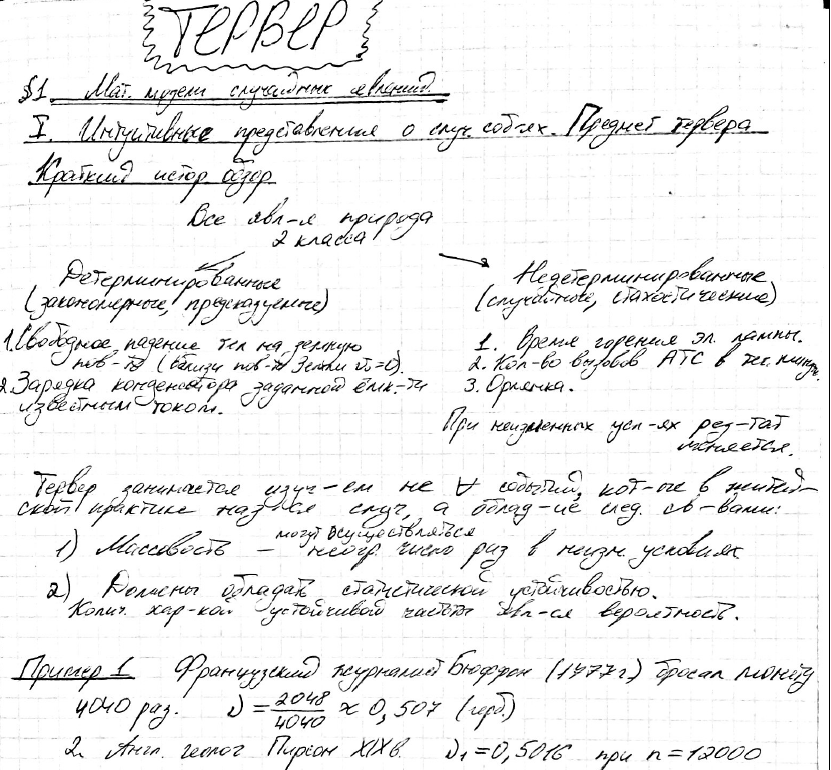 ТЕРВЕР
§1. Мат. модели случайных явлений.
I. Интуитивные представления о случ. соб-ях. Предмет тервера
Краткий истор. обзор.
Все явл-я природы
2 класса
Детерминированные
(закономерные, предсказуемые)
1. Свободное падение тел на земную
пов-ть (вблизи пов-ти Земли v₀=0).
2. Зарядка конденсатора заданной ёмк-ти
известным током.
Недетерминированные
(случайные, стохастические)
1. Время горения эл. лампы.
2. Кол-во вызовов АТС в теч. минуты.
3. Орлянка.
При неизменных усл-ях рез-тат
меняется.
Тервер занимается изуч-ем не ∀ событий, кот-ые в житей-
ской практике наз-ся случ, а облад-ие след. св-вами:
1) Массовость – могут осуществляться
неогр. число раз в неизм. условиях
2) Должны обладать статистической устойчивостью.
Колич. хар-кой устойчивой частоты явл-ся вероятность.
Пример 1 Французский журналист Бюффон (1777г.) бросал монету
4040 раз. ν = 2048/4040 ≈ 0,507 (герб)
2. Англ. геолог Пирсон XIX в. ν₁=0,5016 при n=12000